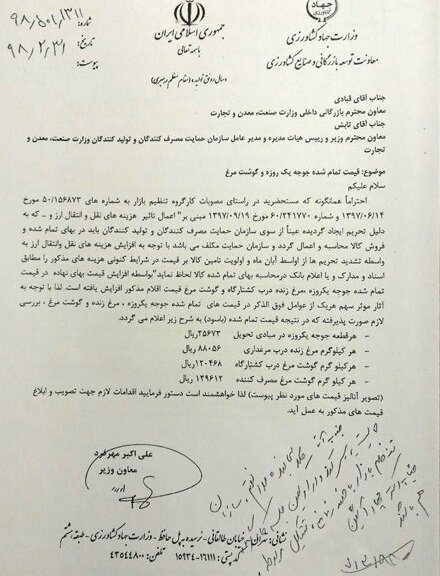 جهاد کشاورزی
جمهوری اسلامی ایران
باسمه تعالی
«سال رونق تولید» (مقام معظم رهبری)
وزارت جهاد کشاورزی
معاونت توسعه بازرگانی و صنایع کشاورزی
شماره:
تاریخ: ۹۸,۲,۲۱
پیوست:
جناب آقای قبادی
معاون محترم بازرگانی داخلی وزارت صنعت، معدن و تجارت
جناب آقای تابش
معاون محترم وزیر و رییس هیات مدیره و مدیر عامل سازمان حمایت مصرف کنندگان و تولید کنندگان وزارت صنعت، معدن و
تجارت
موضوع: قیمت تمام شده جوجه یک روزه و گوشت مرغ
سلام علیکم
احتراماً همانگونه که مستحضرید در راستای مصوبات کارگروه تنظیم بازار به شماره های ۵۰/۱۵۶۸۷۳ مورخ
۱۳۹۷/۰۶/۱۴ و شماره ۶۰/۲۴۱۷۷۰ مورخ ۱۳۹۷/۰۹/۱۹ مبنی بر" اعمال تاثیر هزینه های نقل و انتقال ارز و .. که به
دلیل تحریم ایجاد گردیده عیناً از سوی سازمان حمایت مصرف کنندگان و تولید کنندگان باید در بهای تمام شده و
فروش کالا محاسبه و اعمال گردد و سازمان حمایت مکلف می باشد با توجه به افزایش هزینه های نقل و انتقال ارز به
واسطه تشدید تحریم ها از اواسط آبان ماه و اولویت تامین کالا بر قیمت در شرایط کنونی هزینه های مذکور را مطابق
اسناد و مدارک و یا اعلام بانک درمحاسبه بهای تمام شده کالا لحاظ نماید"بواسطه افزایش قیمت بهای نهاده در قیمت
تمام شده جوجه یکروزه ،مرغ زنده درب کشتارگاه و گوشت مرغ قیمت اقلام مذکور افزایش یافته است. لذا با توجه به
آثار موثر سهم هریک از عوامل فوق الذکر در قیمت های تمام شده جوجه یکروزه ، مرغ زنده و گوشت مرغ ، بررسی
لازم صورت پذیرفته که در نتیجه قیمت تمام شده (باسود) به شرح زیر اعلام می گردد.
- هرقطعه جوجه یکروزه در مبادی تحویل ۲۵۶۷۳ریال
- هر کیلوگرم مرغ زنده درب مرغداری ۸۸۰۵۶ ریال
- هرکیلو گرم گوشت مرغ درب کشتارگاه ۱۲۰۴۶۸ریال
- هر کیلو گرم گوشت مرغ مصرف کننده ۱۲۹۶۱۲ ریال
(تصویر آنالیز قیمت های مورد نظر پیوست) لذا خواهشمند است دستور فرمایید اقدامات لازم جهت تصویب و ابلاغ
قیمت های مذکور به عمل آید.
علی اکبر مهرفرد
معاون وزیر
نشانی: تهران - خیابان طالقانی - نرسیده به پل حافظ - وزارت جهاد کشاورزی - طبقه هشتم
کدپستی: ۱۶۱۱۱-۱۵۹۳۴ تلفن: ۴۳۵۴۴۸۰۰